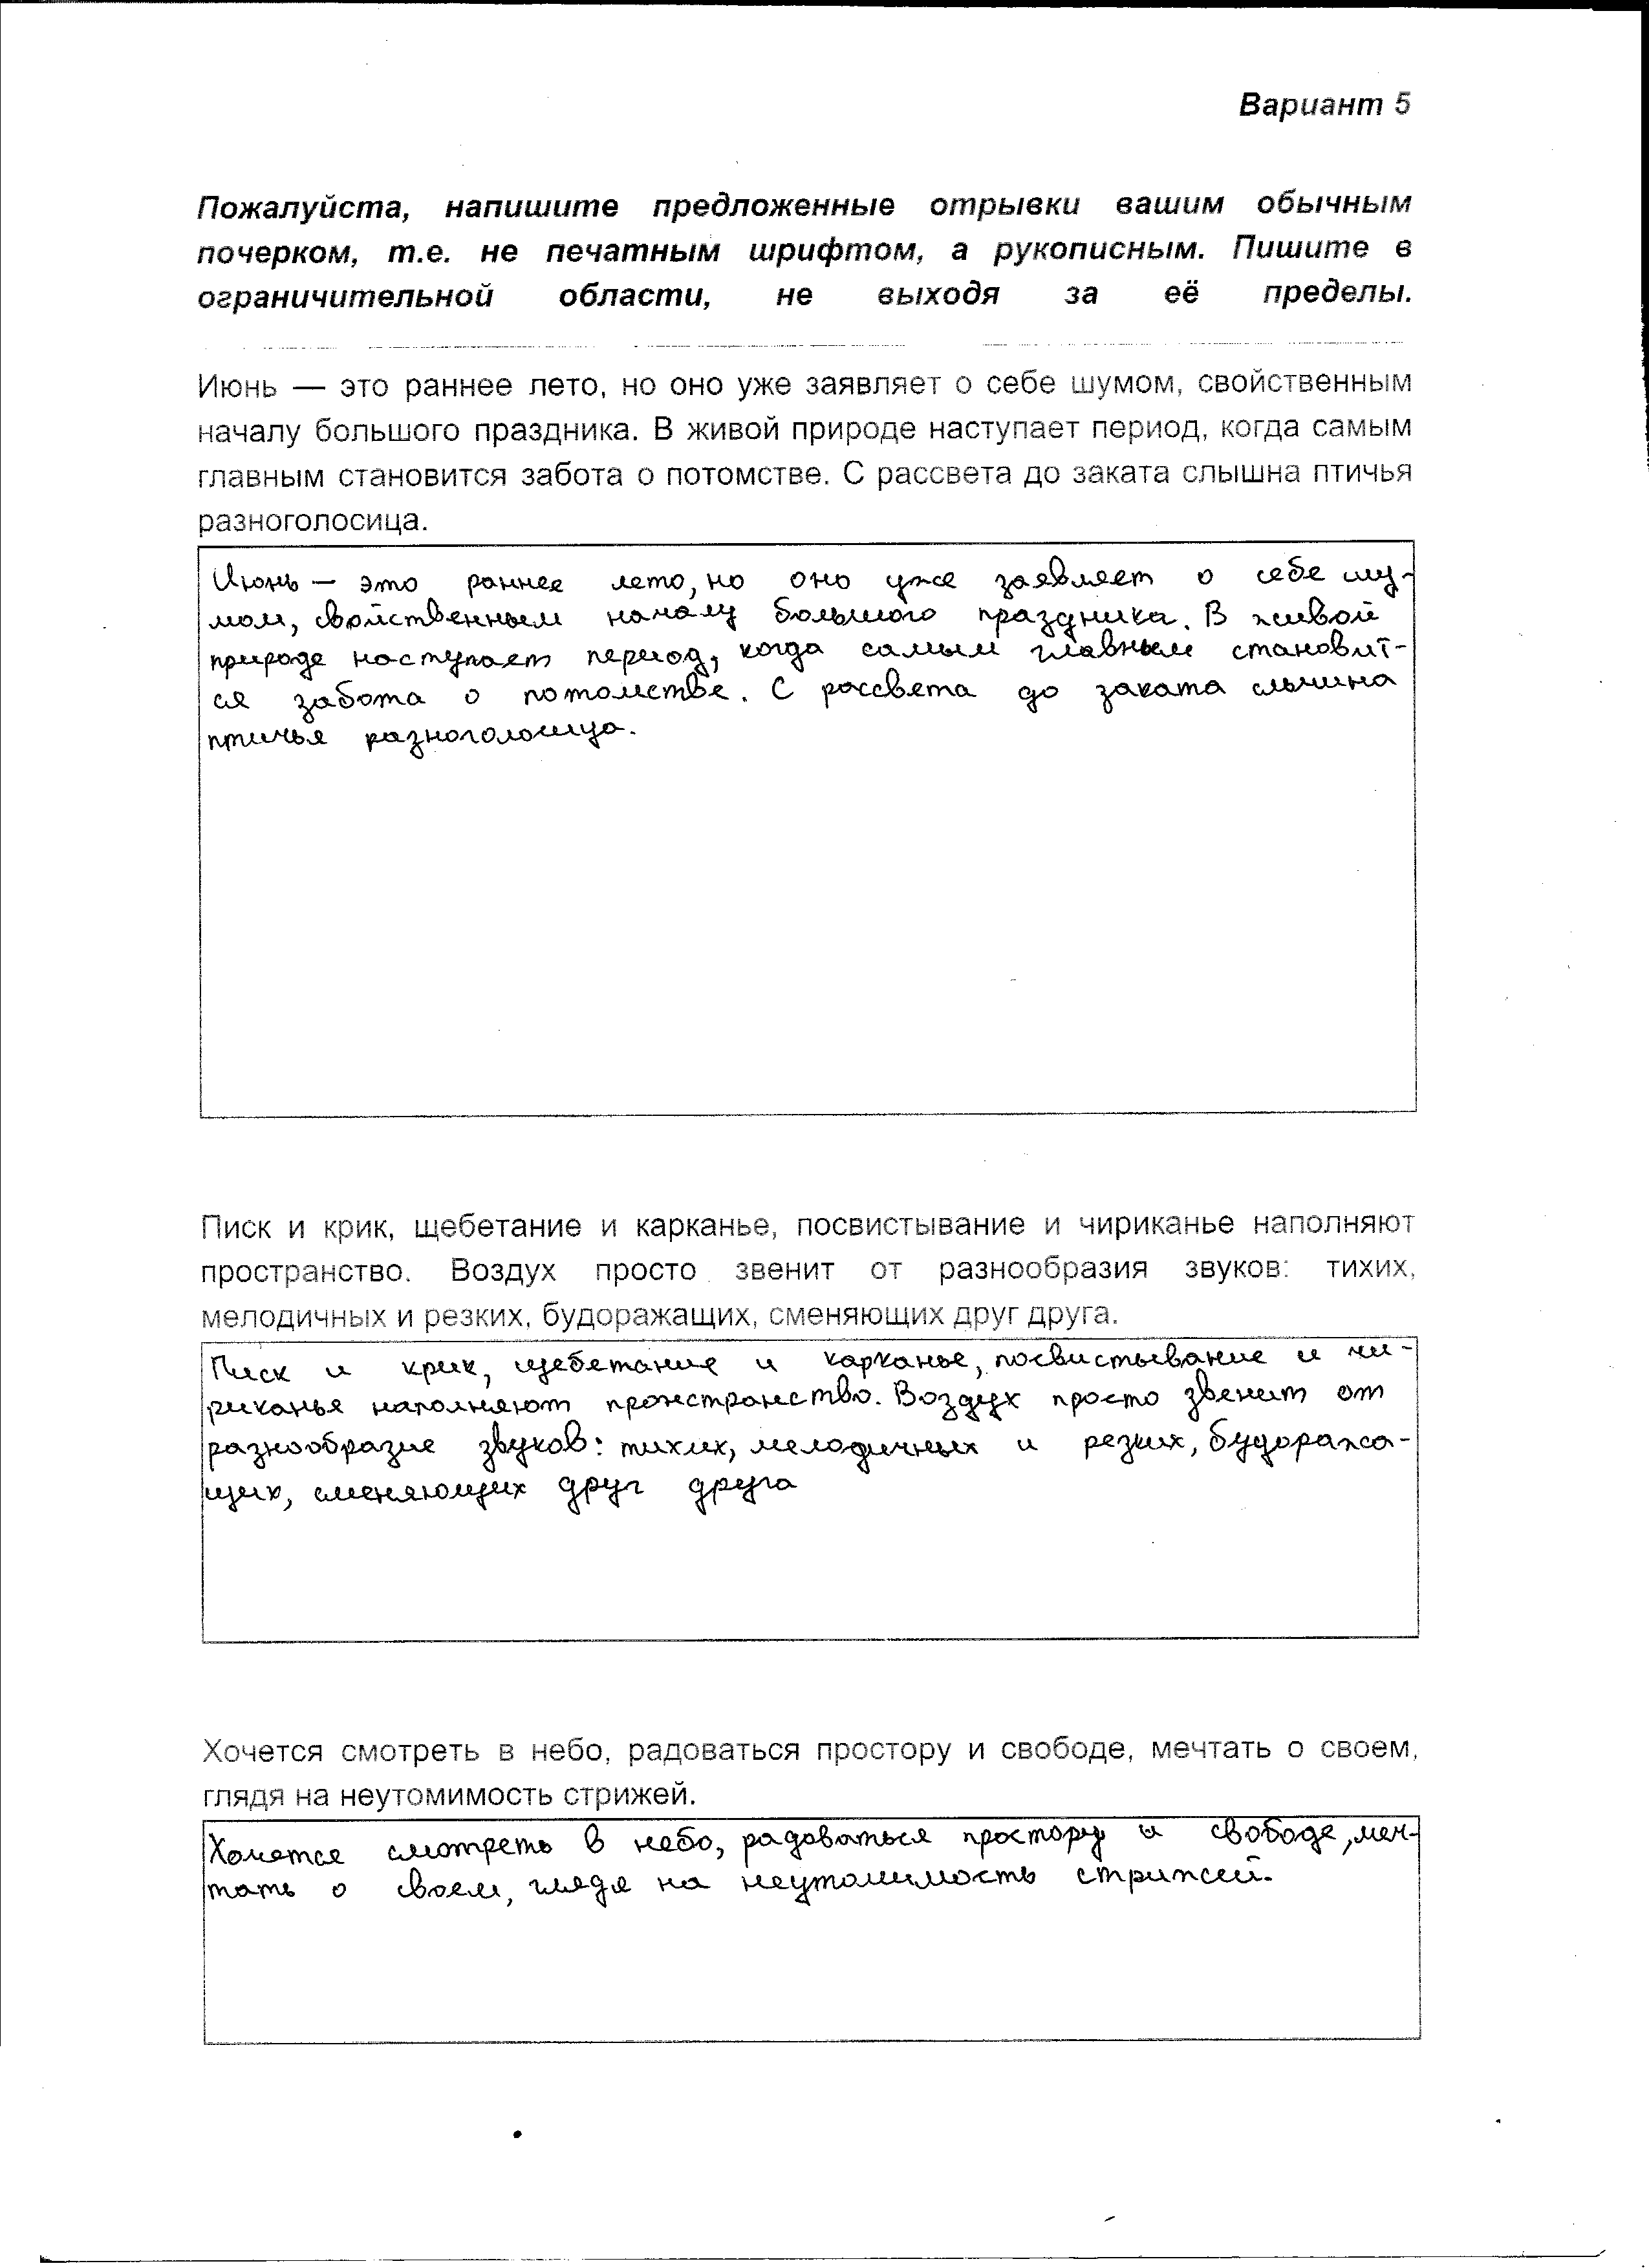 Вариант 5
Пожалуйста, напишите предложенные отрывки вашим обычным
почерком, т.е. не печатным шрифтом, а рукописным. Пишите в
ограничительной области, не выходя за её пределы.
Июнь — это раннее лето, но оно уже заявляет о себе шумом, свойственным
началу большого праздника. В живой природе наступает период, когда самым
главным становится забота о потомстве. С рассвета до заката слышна птичья
разноголосица.
Июнь — это раннее лето, но оно уже заявляет о себе шу-
мом, свойственным началу большого праздника. В живой
природе наступает период, когда самым главным становит-
ся забота о потомстве. С рассвета до заката слышна
птичья разноголосица.
Писк и крик, щебетание и карканье, посвистывание и чириканье наполняют
пространство. Воздух просто звенит от разнообразия звуков: тихих,
мелодичных и резких, будоражащих, сменяющих друг друга.
Писк и крик, щебетание и карканье, посвистывание и чи-
риканья наполняют пространство. Воздух просто звенит от
разнообразие звуков: тихих, мелодичных и резких, будоража-
щих, сменяющих друг друга
Хочется смотреть в небо, радоваться простору и свободе, мечтать о своем,
глядя на неутомимость стрижей.
Хочется смотреть в небо, радоваться простору и свободе, меч-
тать о своем, глядя на неутомимость стрижей.